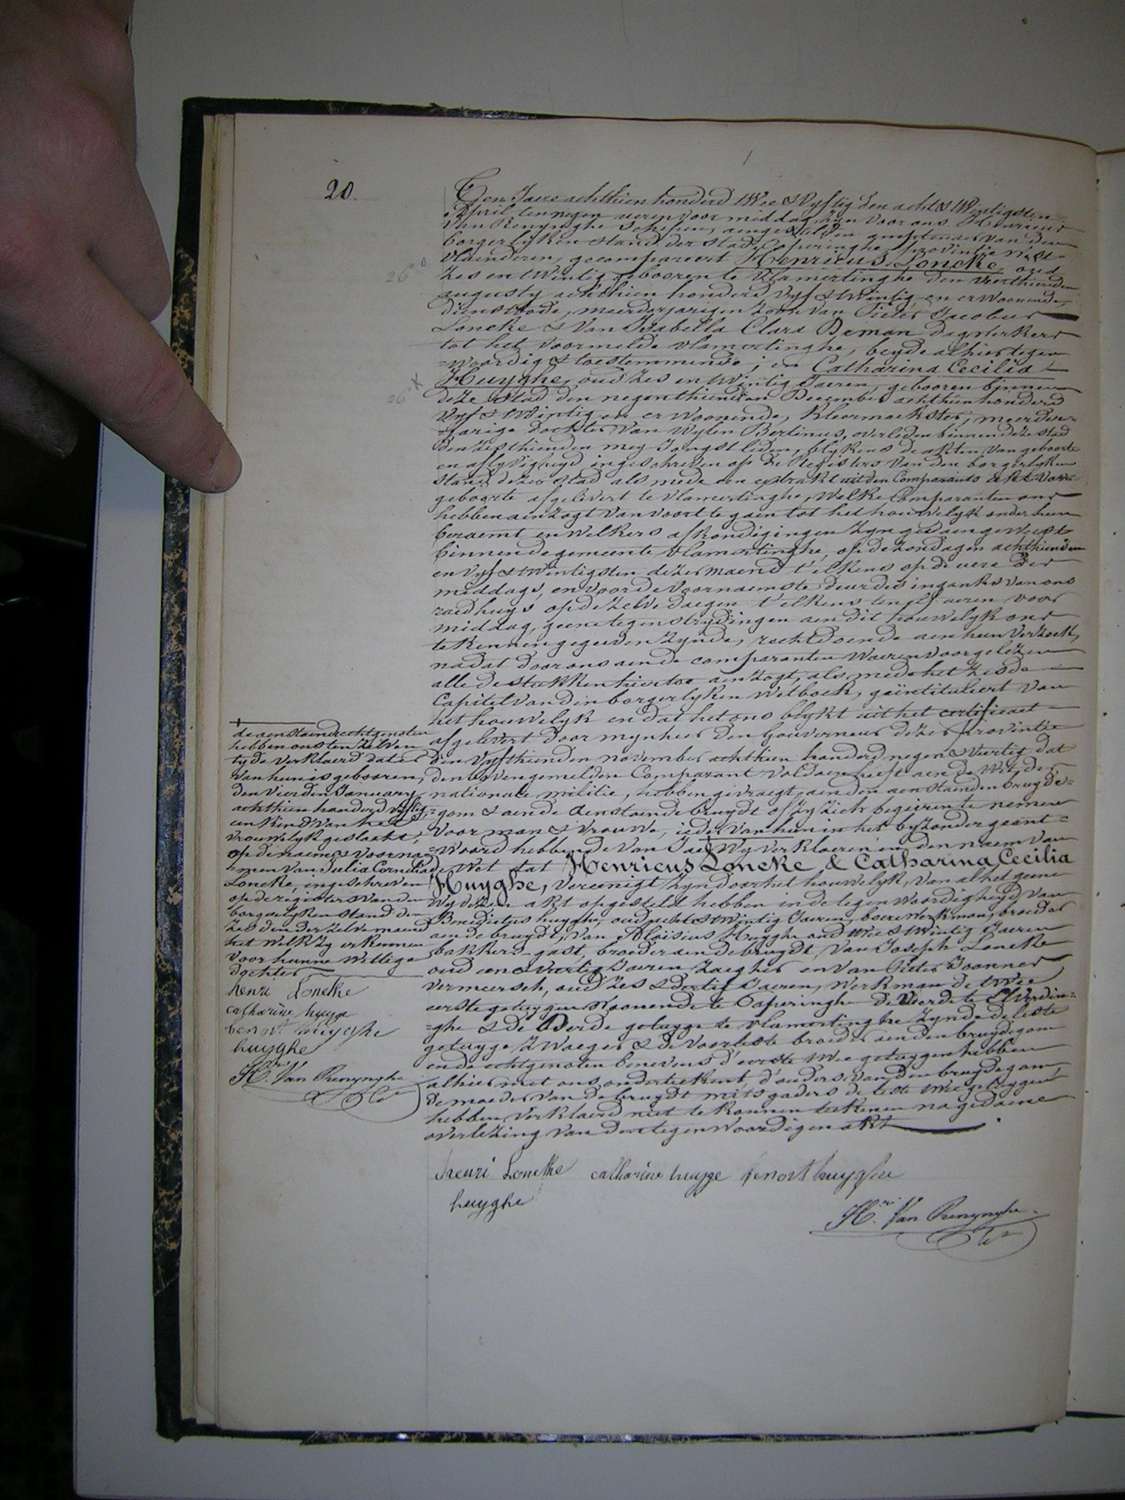 20.
Ten Jaere achthien honderd twee & vyftig den acht & twintigsten
April, ten negen ueren voor middag, zyn voor ons Henricus
Van Renynghe Schepen, aengestelden ambtenaer van den
borgerlyken stand der Stad Poperinghe, Provintie west-
Vlaenderen, gecompareert Henricus Loncke, oud
26
zes en twintig, gebooren te Vlamertinghe den veerthienden
augusty achthien honderd vyf & twintig en er woonende,
dienstbode, meerderjaerigen zoon van Pieter Jacobus
Loncke & van Isabella Clara Deman dagwerkers
tot het voormelde Vlamertinghe, beyde alhier tegen-
woordig & toestemmende; en Catharina Cecilia
Huyghe, oud zes en twintig Jaeren, gebooren binnen
26
deze Stad den negenthienden December achthien honderd
vyf & twintig en er woonende, kleermaekster, meerder-
jarige dochter van wylen Bertinus, overleden binnen deze stad
den zesthienden mey Jongstleden, blykens de akten van geboorte
en aflyvigheyd ingeschreven op de Registers van den borgerlyken
Stand dezer stad als mede een extrakt uit den Comparants akt van
geboorte afgelevert te Vlamertinghe, Welke Comparanten ons
hebben aenzogt van voort te gaen tot het houwelyk onder hun
beraemt en welkers afkondigingen zyn gedaen geweest
binnen de gemeente Vlamertinghe, op de zondagen achthienden
en vyf & twintigsten dezer maend t'elkens op de uere der
middags, en voor de voornaemste deur des ingangs van ons
raedhuys op de zelve dagen t'elkens ten elf ueren voor
middag, geene tegenstrydingen aen dit houwelyk ons
te kennen gegeven zynde, rechtdoende aen hun verzoek,
nadat door ons aen de comparanten waeren voorgelezen
alle de stukken hiertoe aenzogt, als mede het zesde
Capitel van den borgerlyken Wetboek, geïntituleert van
het houwelyk en dat het ons blykt uit het certificaet
afgelevert door mynheer den Gouverneur dezer provintie
den vyfthienden november achthien honderd negen & veertig dat
den bovengemelden Comparant voldaen heeft aen de Wet der
nationale militie, hebben gevraegt aen den aenstaenden bruyde-
gom & aen de aenstaende bruydt of zy zich begeiren te nemen
voor man & vrouwe, ieder van hun in het byzonder geant-
woord hebbende van Jae, Wy verklaeren in den naem van
de Wet dat Henricus Loncke & Catharina Cecilia
Huyghe, vereenigt zyn door het houwelyk, van al het gene
wy deze akt opgesteld hebben in de tegenwoordigheyd van
Benedictus huyghe, oud acht & twintig Jaeren, boere werkman, broeder
aen de bruydt, van Aloisius Huyghe oud drie & twintig Jaeren
bakkers-gast, broeder aen de bruydt, van Joseph Loncke
oud een & veertig Jaeren, zaeger en van Pieter Joannes
Vermeersch, oud zes & dertig Jaeren, werkman de twee
eerste getuygen woonende te Poperinghe de vierde te Elverdin-
ghe & de derde getuyge te Vlamertinghe zynde de leste
getuyge zwaeger & de voorleste broeder aen den bruydegom
en de echtgenoten benevens d'eerste twee getuygen hebben
alhier met ons onderteekent, d'ouders van den bruydegom
de moeder van de bruydt mitsgaders de leste twee getuygen
hebben verklaerd niet te konnen teekenen na gedaene
overlezing van den tegenwoordigen akt.
henri Loncke catharine huyge benoit huyghe
huyghe
H.ri Van Renynghe
de aenstaende echtgenoten
hebben ons ten zelven
tyde verklaerd dat er
van hun is gebooren,
den vierden January
achthien honderd vyftig
een kind van het
vrouwelyk geslacht,
op de naem & voorna-
men van Julia Cornelia
Loncke, ingeschreven
op de registers van den
borgerlyken stand den
zesden der zelve maend
het welk zy erkennen
voor hunne wettige
dochter
henri Loncke
catharine huyge
benoit huyghe
huyghe
H.ri Van Renynghe